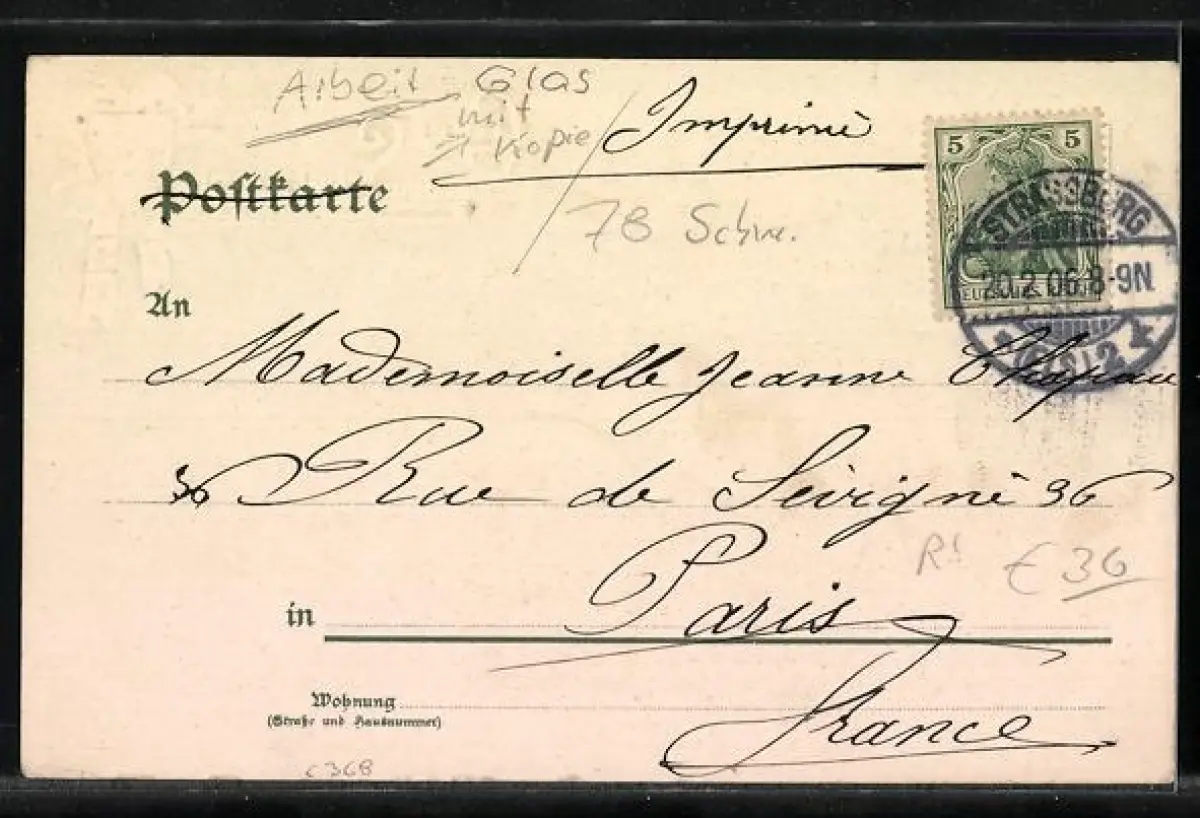 Arbeit - Glas
mit
Kopie
Imprimé
Postkarte
78 Schw.
5 5
STRASSBURG
20.2.06.8-9N
(ELS) 2 k
An
Mademoiselle Jeanne
36 Rue de Sévigné 36
R! € 36
in Paris
Wohnung
(Straße und Hausnummer)
France